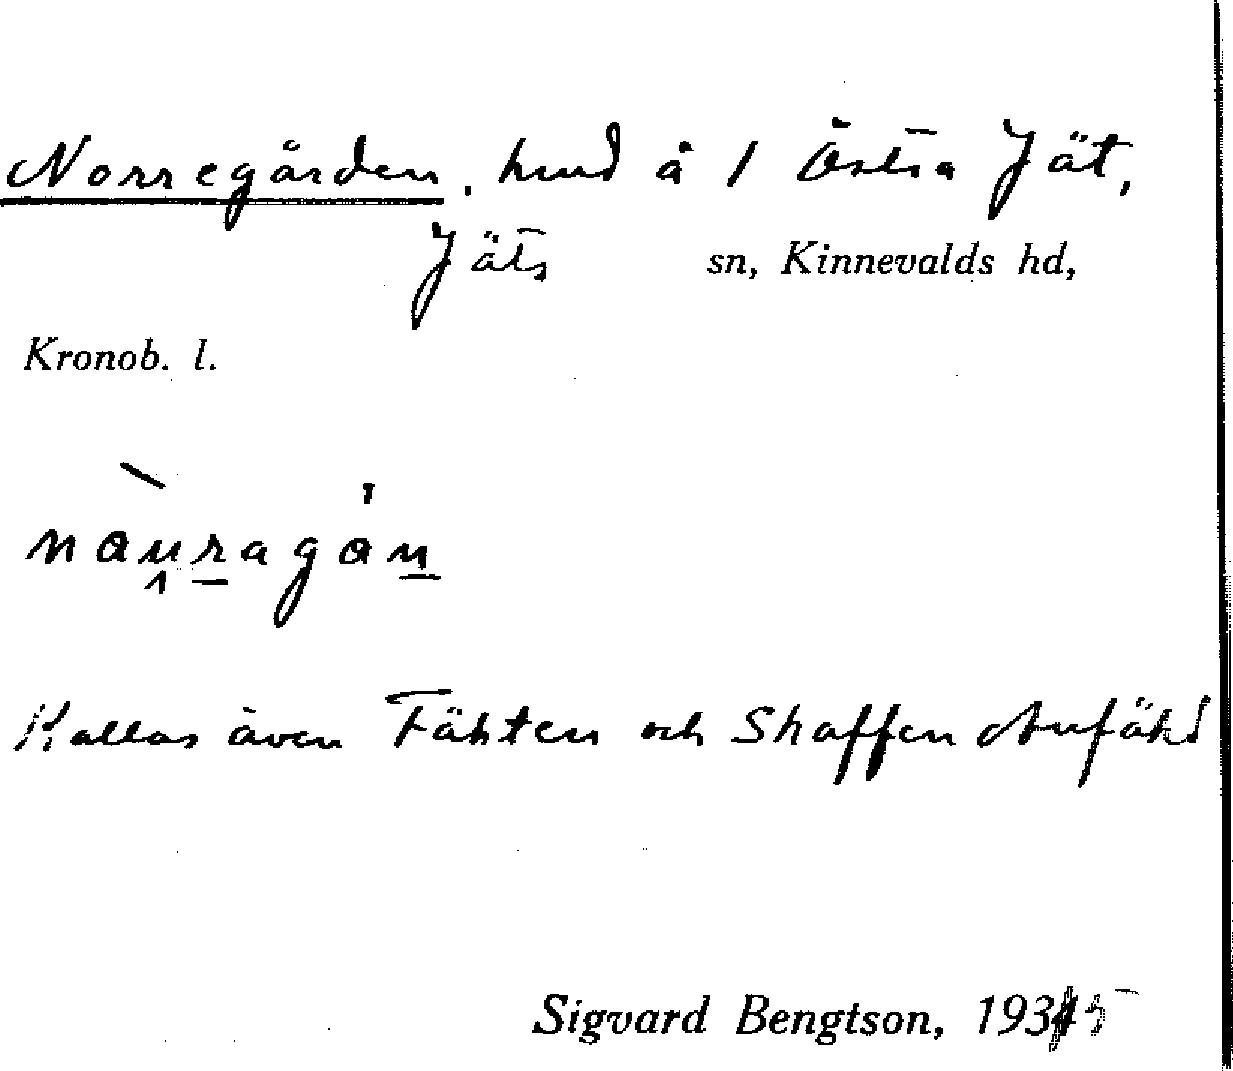 Norregården, hmd å 1 Östra Jät,
Jäts sn, Kinnevalds hd,
Kronob. l.
nau̯ragån
Kallas även Fähten och Skaffen
Sigvard Bengtson, 1935